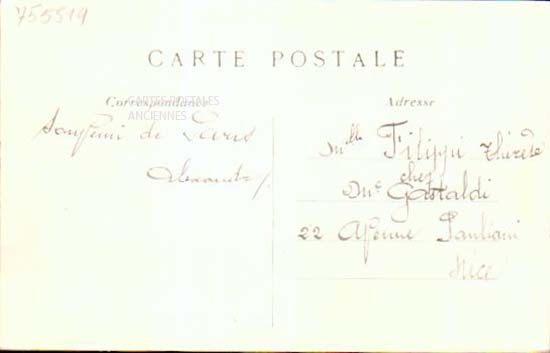 755519
CARTE POSTALE
Correspondance
Adresse
CARTES POSTALES
ANCIENNES
Souvenir de
Alexandre
Mlle Filippi Thérèse
chez
Me Gastaldi
22 Avenue Pauliani
Nice